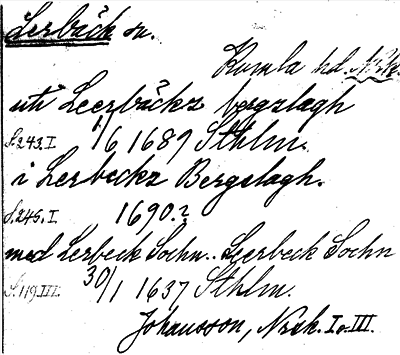 Lerbäck sn.
Kumla hd. Nrke.
uti Leerbäckz bergslagh
S. 243. I 1/6 1689 Sthlm.
i Lerbeckz Bergslagh.
S. 245. I. 1690.?
med Lerbeck Sochn.. Leerbeck Sochn
S. 119. III. 30/1 1637 Sthlm.
Johansson, Nrik. I o. III.